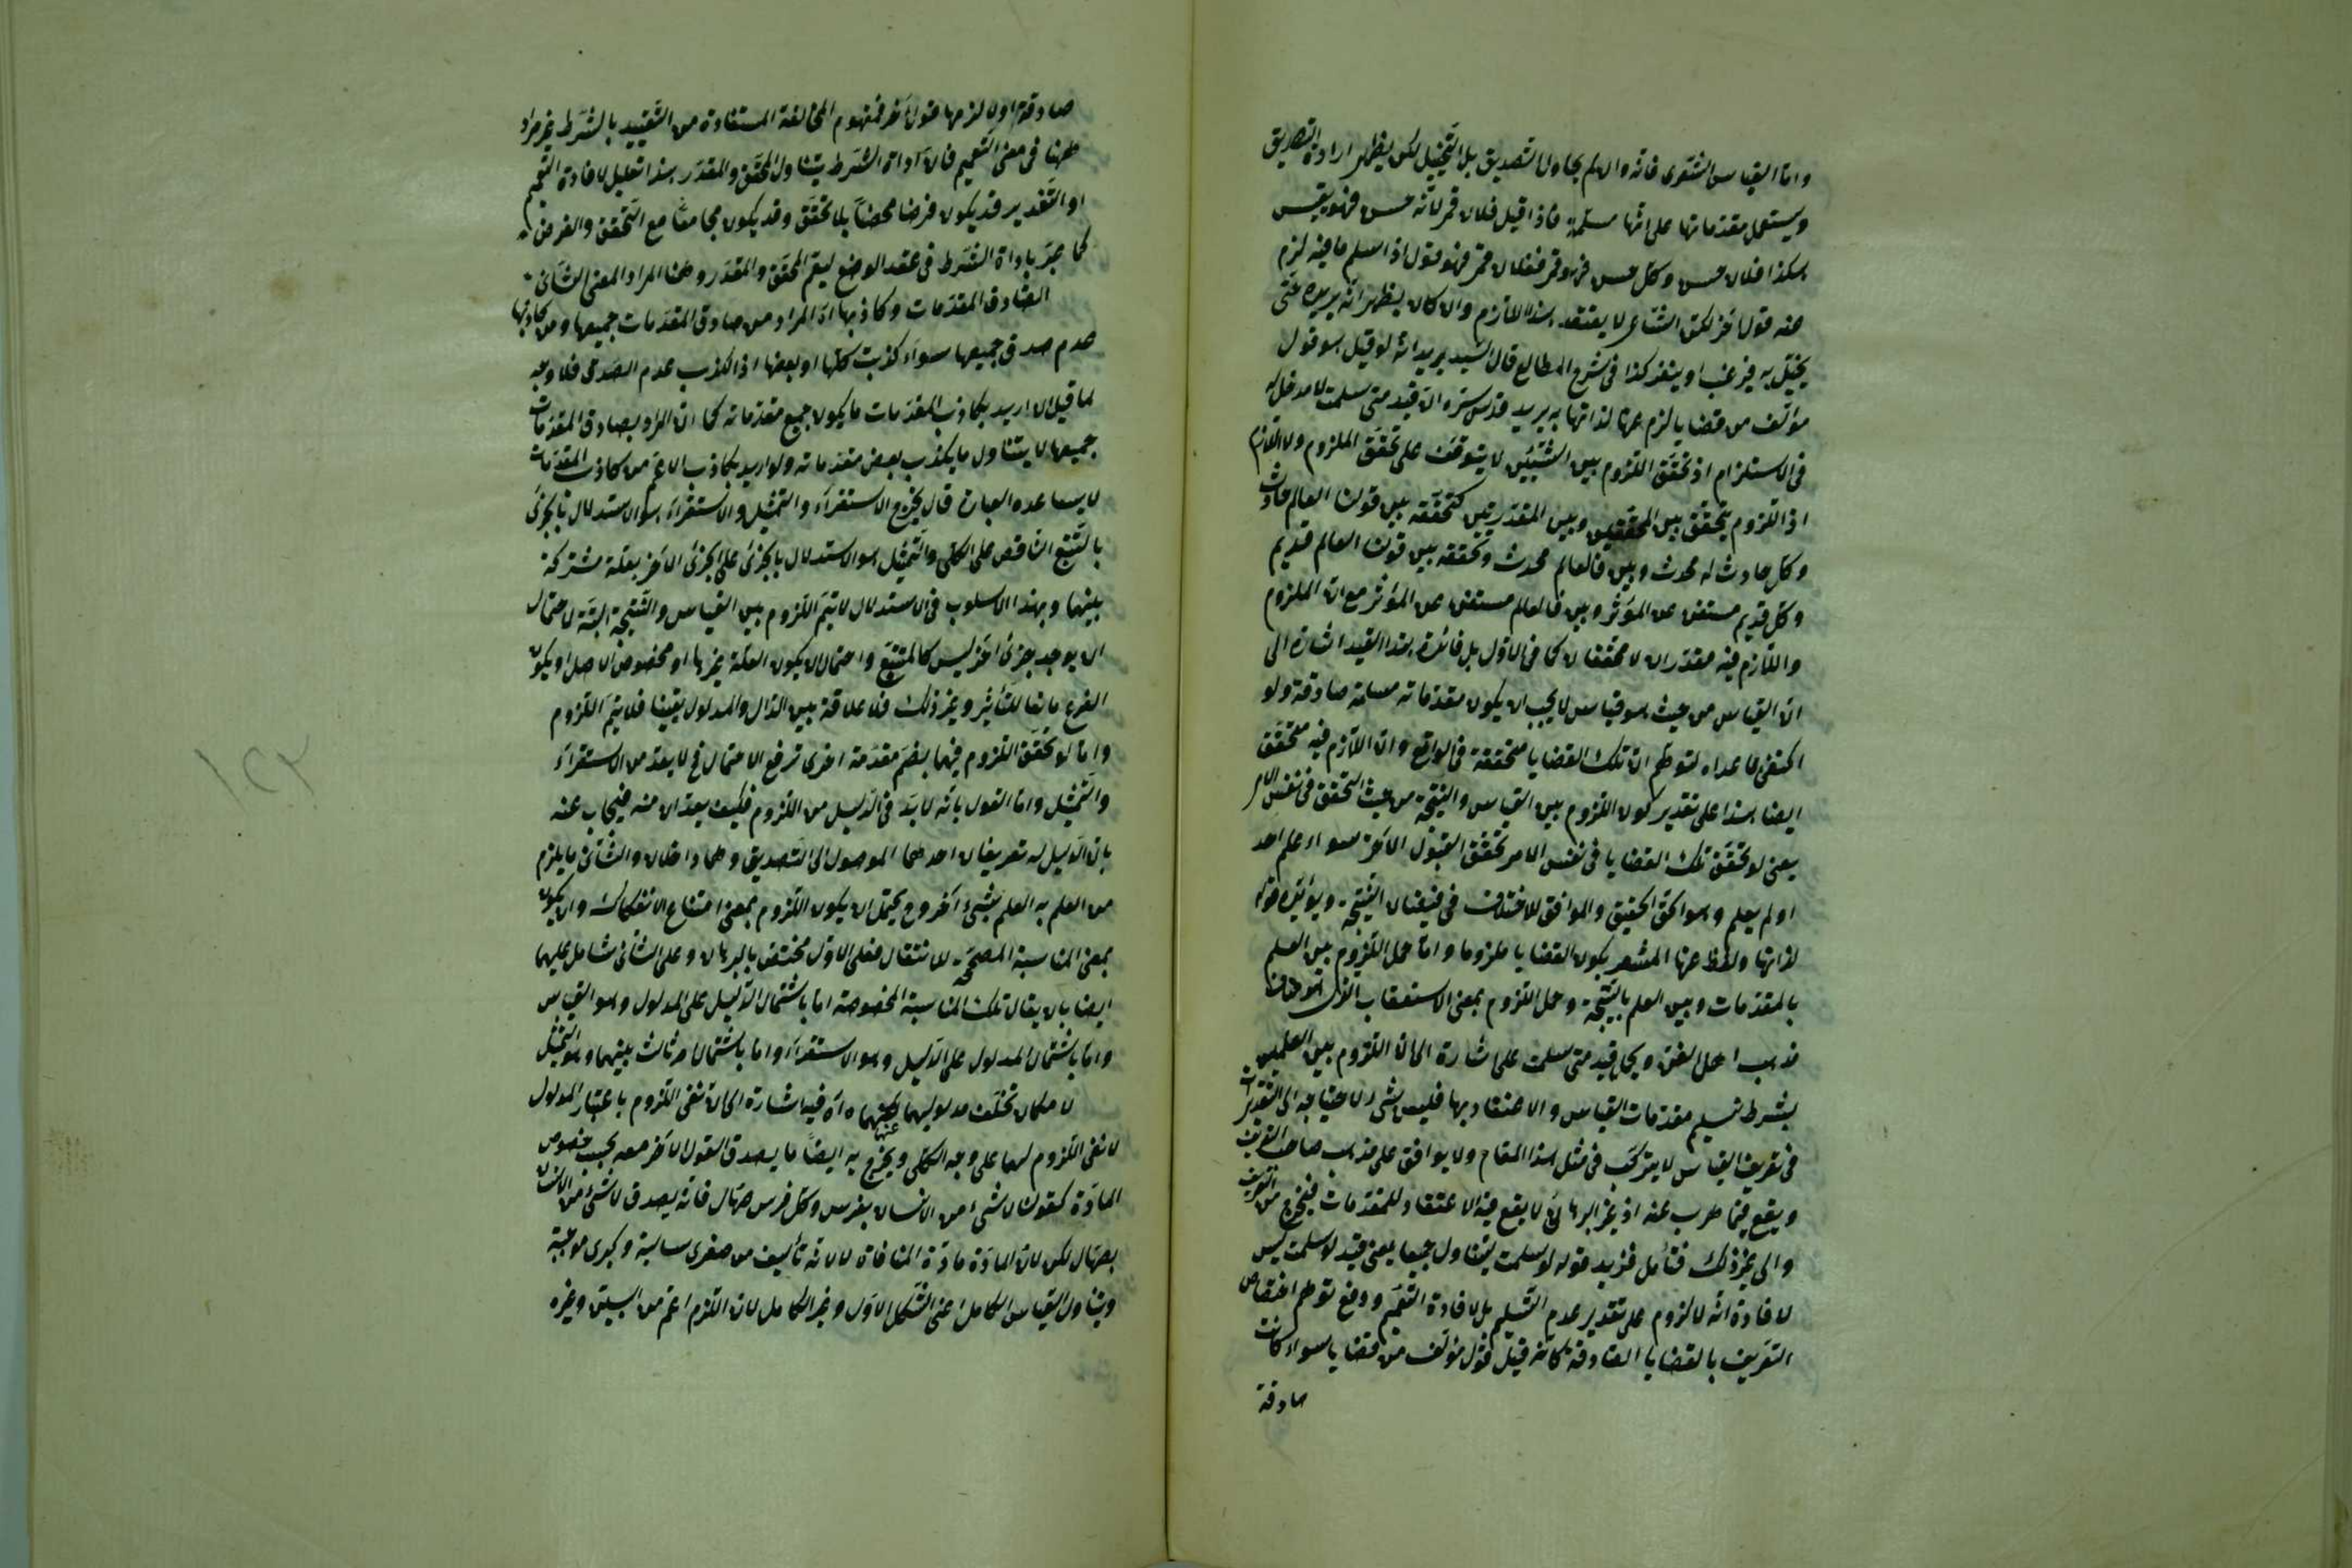 واما القياس الشعرى فانه وان لم يحاول التصديق بل التخييل لكن يظهر ارادة التصديق
ويستعمل مقدماتها على انها مسلمة فاذا قيل فلان قمر لانه حسن فهو يقيس
هكذا فلان حسن وكل حسن فهو قمر ففلان قمر فهو قول اذا سلم ما فيه لزم
عنه قول آخر لكن الشاعر لا يعتقد هذا اللازم وان كان يظهر انه يريده حتى
يخيل به فيرغب او ينفر كذا فى شرح المطالع قال السيد يريد انه لو قيل هو قول
مؤلف من قضايا لزم عنها لذاتها به يريد قدس سره ان قيد متى سلمت لا مدخل له
فى الاستلزام اذ تحقق اللزوم بين الشيئين لا يتوقف على تحقق الملزوم ولا اللازم
اذ اللزوم يتحقق بين المحققين وبين المقدرين كتحققه بين قولنا العالم حادث
وكل حادث له محدث وبين فالعالم محدث وتحققه بين قولنا العالم قديم
وكل قديم مستغن عن المؤثر وبين فالعالم مستغن عن المؤثر مع ان الملزوم
واللازم فيه مقدران لا محققان كما فى الاول بل فائدة هذا القيد اشارة الى
ان القياس من حيث هو قياس لا يجب ان يكون مقدماته مسلمة صادقة ولو
اكتفى بما عداه لتوهم ان تلك القضايا متحققة فى الواقع وان اللازم فيه متحقق
ايضا هذا على تقدير كون اللزوم بين القياس والنتيجة من حيث التحقق فى نفس الامر
يعنى لو تحقق تلك القضايا فى نفس الامر تحقق القول الآخر سواء علم احد
او لم يعلم وهو الحق الحقيق والموافق للاختلاف فى فيضان النتيجة ويؤيده قوله
لذاتها ولفظ عنها المشعر بكون القضايا ملزوما واما حمل اللزوم بين العلم
بالمقدمات وبين العلم بالنتيجة وحمل اللزوم بمعنى الاستعقاب
مذهب اهل الفن ويجل قيد متى سلمت على اشارة الى ان اللزوم بين العلمين
بشرط تسليم مقدمات القياس والاعتقاد بها فليس بشىء لاحتياجه الى التقديرات
فى تعريف القياس لا يرتكب فى مثل هذا المقام ولا يوافق على مذهب صاحب التعريف
ويقع فيما هرب عنه اذ غير البرهانى لا يقع فيه الاعتقاد للمقدمات فيخرج من التعريف
والى غير ذلك فتأمل فزيد قوله لو سلمت ليتناول جميعا يعنى قيد لو سلمت ليس
لافادة انه لا لزوم على تقدير عدم التسليم بل لافادة التعميم ودفع توهم اختصاص
التعريف بالقضايا الصادقة كانه قيل قول مؤلف من قضايا سواء كانت
صادقة
صادقة اولا لزمها قول آخر فمفهوم المخالفة المستفادة من التقييد بالشرط غير مراد
ههنا فى معنى التعميم فان اداة الشرط يتناول المحقق والمقدر هذا تعليل لافادة التعميم
او التقدير قد يكون فرضا محضا بلا تحقق وقد يكون مجامعا مع التحقق والفرض
كما عبر باداة الشرط فى عقد الوضع ليعم المحقق والمقدر وههنا المراد المعنى الثانى
الصادق المقدمات وكاذبها اه المراد من صادق المقدمات جميعها ومن كاذبها
عدم صدق جميعها سواء كذبت كلها او بعضها اذ الكذب عدم الصدق فلا وجه
لما قيل ان اريد بكاذب المقدمات ما يكون جميع مقدماته كما ان المراد بصادق المقدمات
جميعها لا يتناول ما يكذب بعض مقدماته ولو اريد بكاذب الاعم من كاذب المقدمات
لا يساعده العبارة قال يخرج الاستقراء والتمثيل والاستقراء هو الاستدلال بالجزئى
بالتتبع الناقص على الكلى والتمثيل هو الاستدلال بالجزئى على الجزئى الآخر بعلة مشتركة
بينهما وبهذا الاسلوب فى الاستدلال لا يتم اللزوم بين القياس والنتيجة البتة لاحتمال
ان يوجد جزئى آخر ليس كالمتتبع واحتمال ان يكون العلة غيرها او مخصوص الاصل او يكون
الفرع مانعا للتأثير وغير ذلك فلا علاقة بين الدال والمدلول يقينا فلا يتم اللزوم
واما لو تحقق اللزوم فيهما بضم مقدمة اخرى ترفع الاحتمال فح لا يعد من الاستقراء
والتمثيل واما القول بانه لا بد فى الدليل من اللزوم فكيف يعدان منه فيجاب عنه
بان الدليل له تعريفان احدهما الموصل الى التصديق وهما داخلان والثانى ما يلزم
من العلم به العلم بشىء آخر وح يحتمل ان يكون اللزوم بمعنى امتناع الانفكاك وان يكون
بمعنى المناسبة المصححة للانتقال فعلى الاول مختص بالبرهان وعلى الثانى شامل عليهما
ايضا بان يقال تلك المناسبة المخصوصة اما باشتمال الدليل على المدلول وهو القياس
واما باشتمال المدلول على الدليل وهو الاستقراء واما باشتمال امر ثالث بينهما وهو التمثيل
لامكان تخلف مدلوليهما عنهما اه فيه اشارة الى ان نفى اللزوم باعتبار المدلول
لا نفى اللزوم لهما على وجه الكلى ويخرج به ايضا ما يصدق القول الآخر معه بحسب خصوص
المادة كقولك لا شىء من الانسان بفرس وكل فرس صهال فانه يصدق لا شىء من الانسان
بصهال لكن لان المادة مادة المنافاة لا لانه تأليف من صغرى سالبة وكبرى موجبة
ويتناول القياس الكامل اعنى الشكل الاول وغير الكامل لان اللزوم اعم من البين وغيره
١٢٢